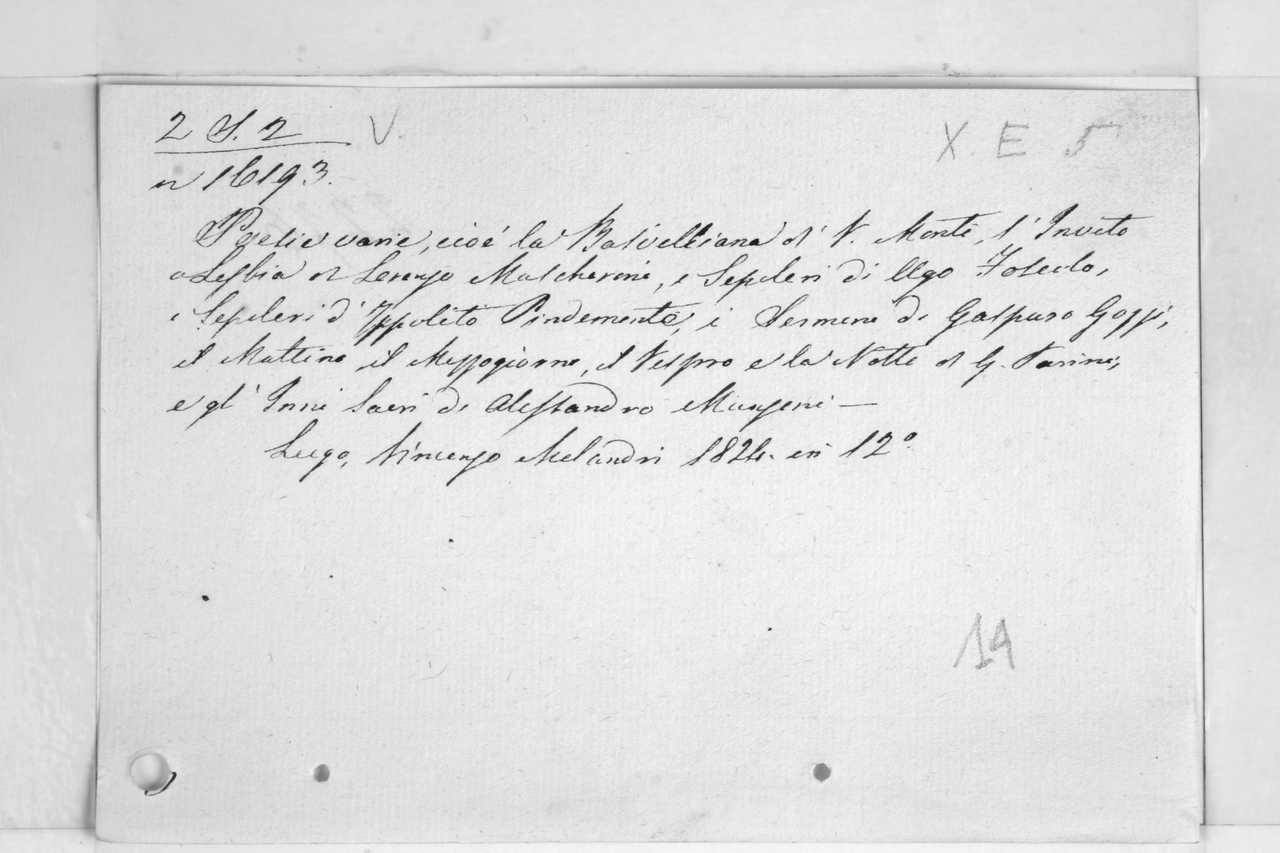 2 S. 2 V. X. E 5
n 16193.
Poesie varie, cioè la Basvelliana di V. Monti, l'Invito
a Lesbia di Lorenzo Mascheroni, i Sepolcri di Ugo Foscolo,
i Sepolcri d'Ippolito Pindemonte, i Sermoni di Gasparo Gozzi,
il Mattino, il Mezzogiorno, il Vespro e la Notte di G. Parini,
e gl'Inni Sacri di Alessandro Manzoni —
Lugo, Vincenzo Melandri 1824. in 12°
19